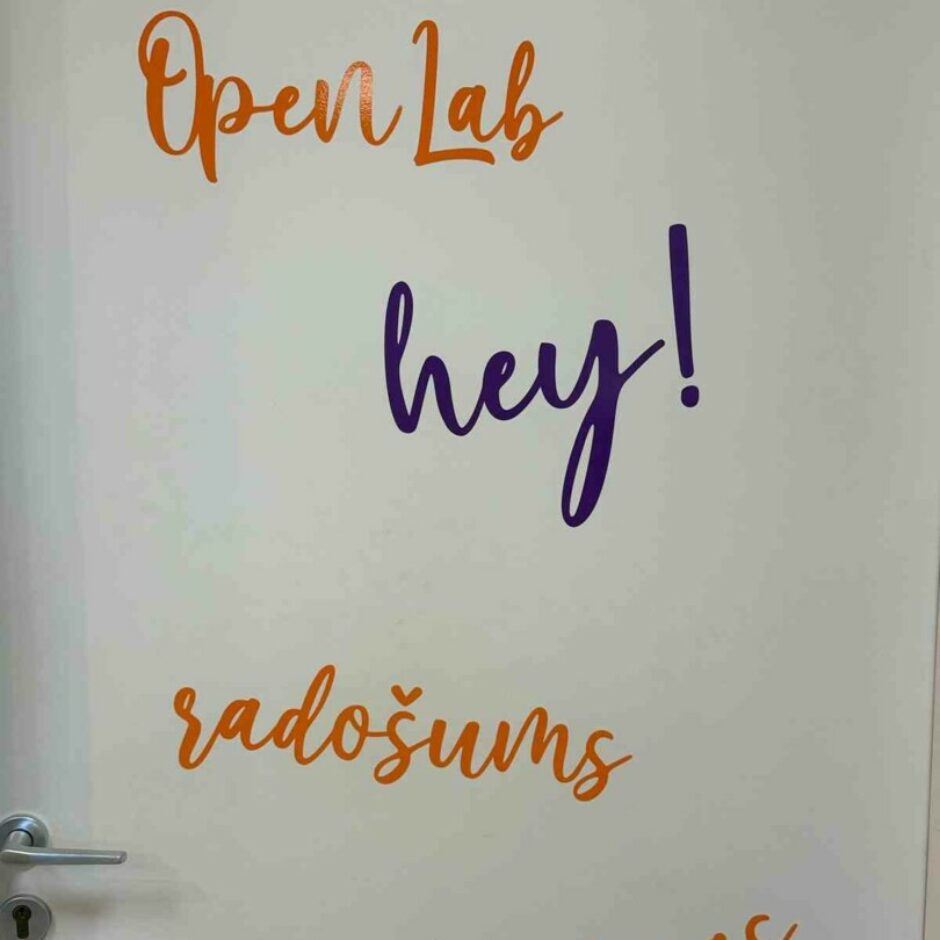 Open Lab
hey!
radošums